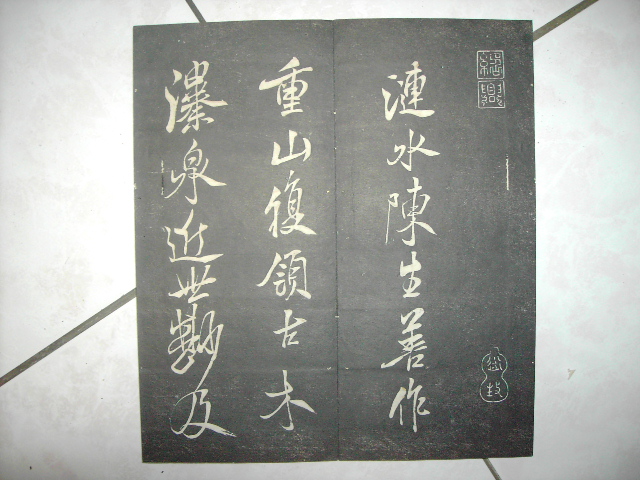 漣水陳生善作
重山復領古木
瀑泉近世尠及